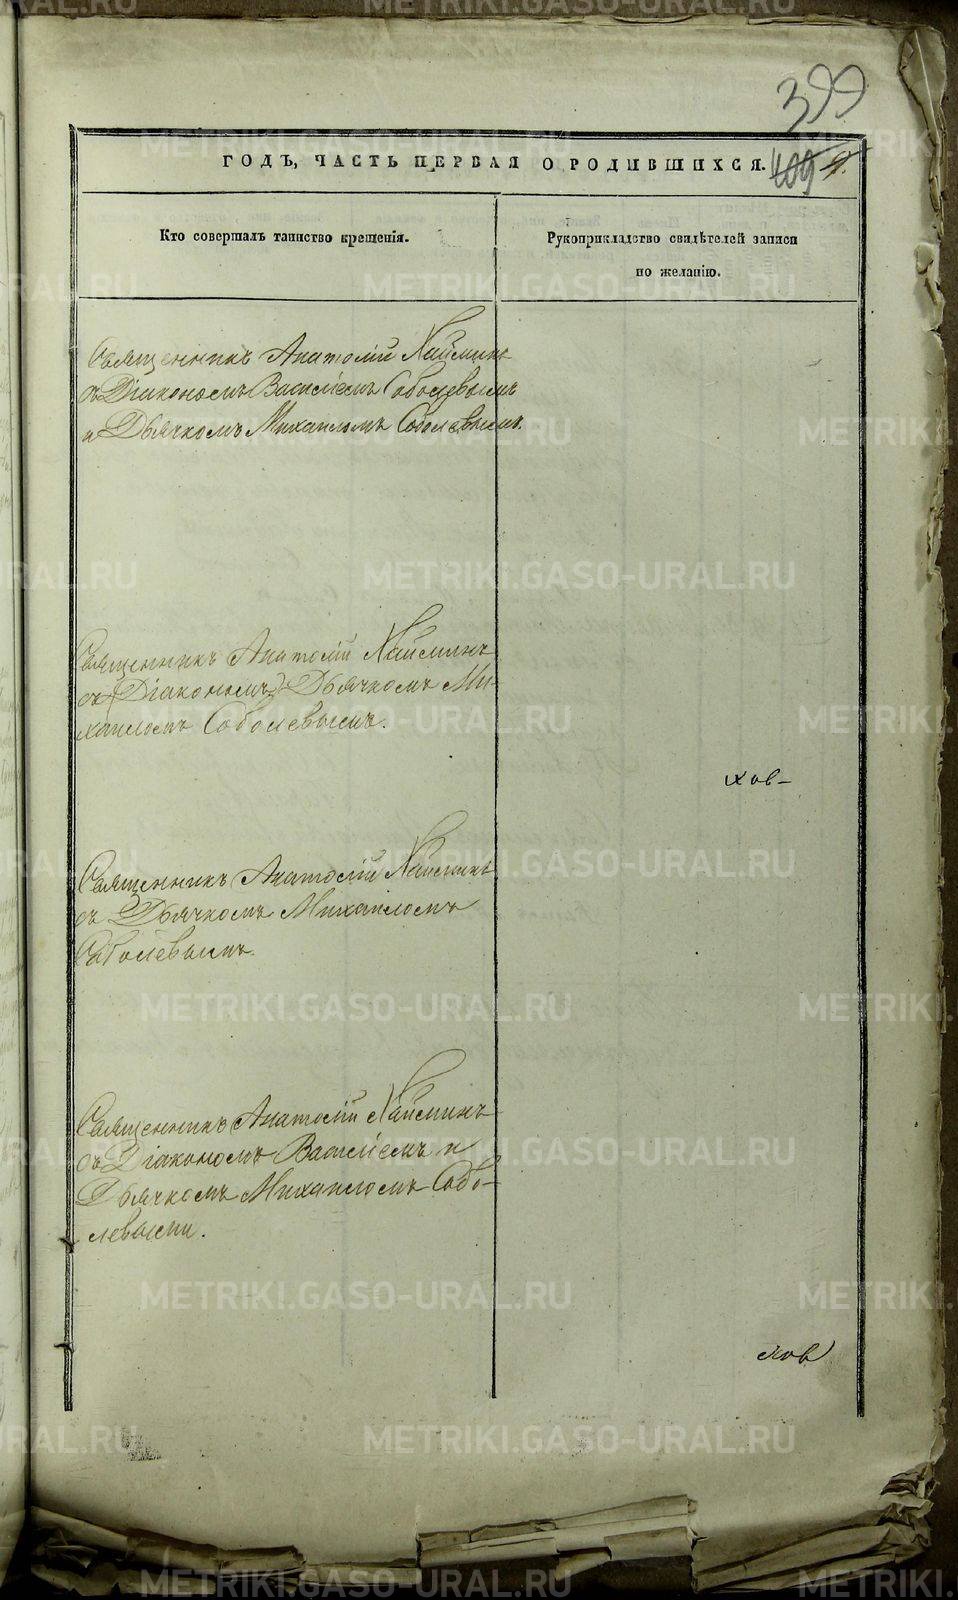 399
ГОДЪ, ЧАСТЬ ПЕРВАЯ О РОДИВШИХСЯ. 409
Кто совершалъ таинство крещенія.
Рукоприкладство свидѣтелей записи
по желанію.
Священникъ Анатолій Хайминъ
съ Діакономъ Василіемъ Соболевымъ
и Дьячкомъ Михаиломъ Соболевымъ.
Священникъ Анатолій Хайминъ
съ (Діакономъ) Дьячкомъ Ми-
хаиломъ Соболевымъ.
хов-
Священникъ Анатолій Хайминъ
съ Дьячкомъ Михаиломъ
Соболевымъ.
Священникъ Анатолій Хайминъ
съ Діакономъ Василіемъ и
Дьячкомъ Михаиломъ Собо-
левыми.
ков
METRIKI.GASO-URAL.RU